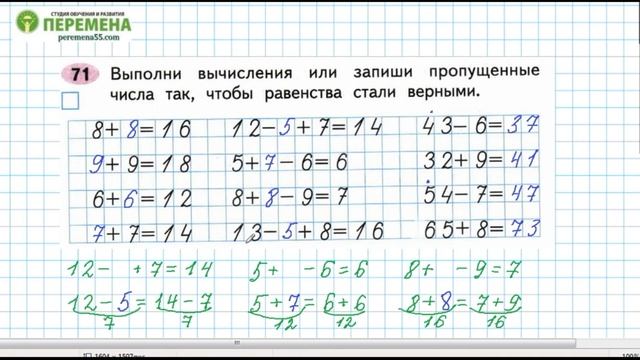 СТУДИЯ ОБУЧЕНИЯ И РАЗВИТИЯ
ПЕРЕМЕНА
peremena55.com
71 Выполни вычисления или запиши пропущенные
числа так, чтобы равенства стали верными.
8+8=16 12-5+7=14 43-6=37
9+9=18 5+7-6=6 32+9=41
6+6=12 8+8-9=7 54-7=47
7+7=14 13-5+8=16 65+8=73
12- +7=14 5+ -6=6 8+ -9=7
12-5=14-7 5+7=6+6 8+8=7+9
7 7 12 12 16 16